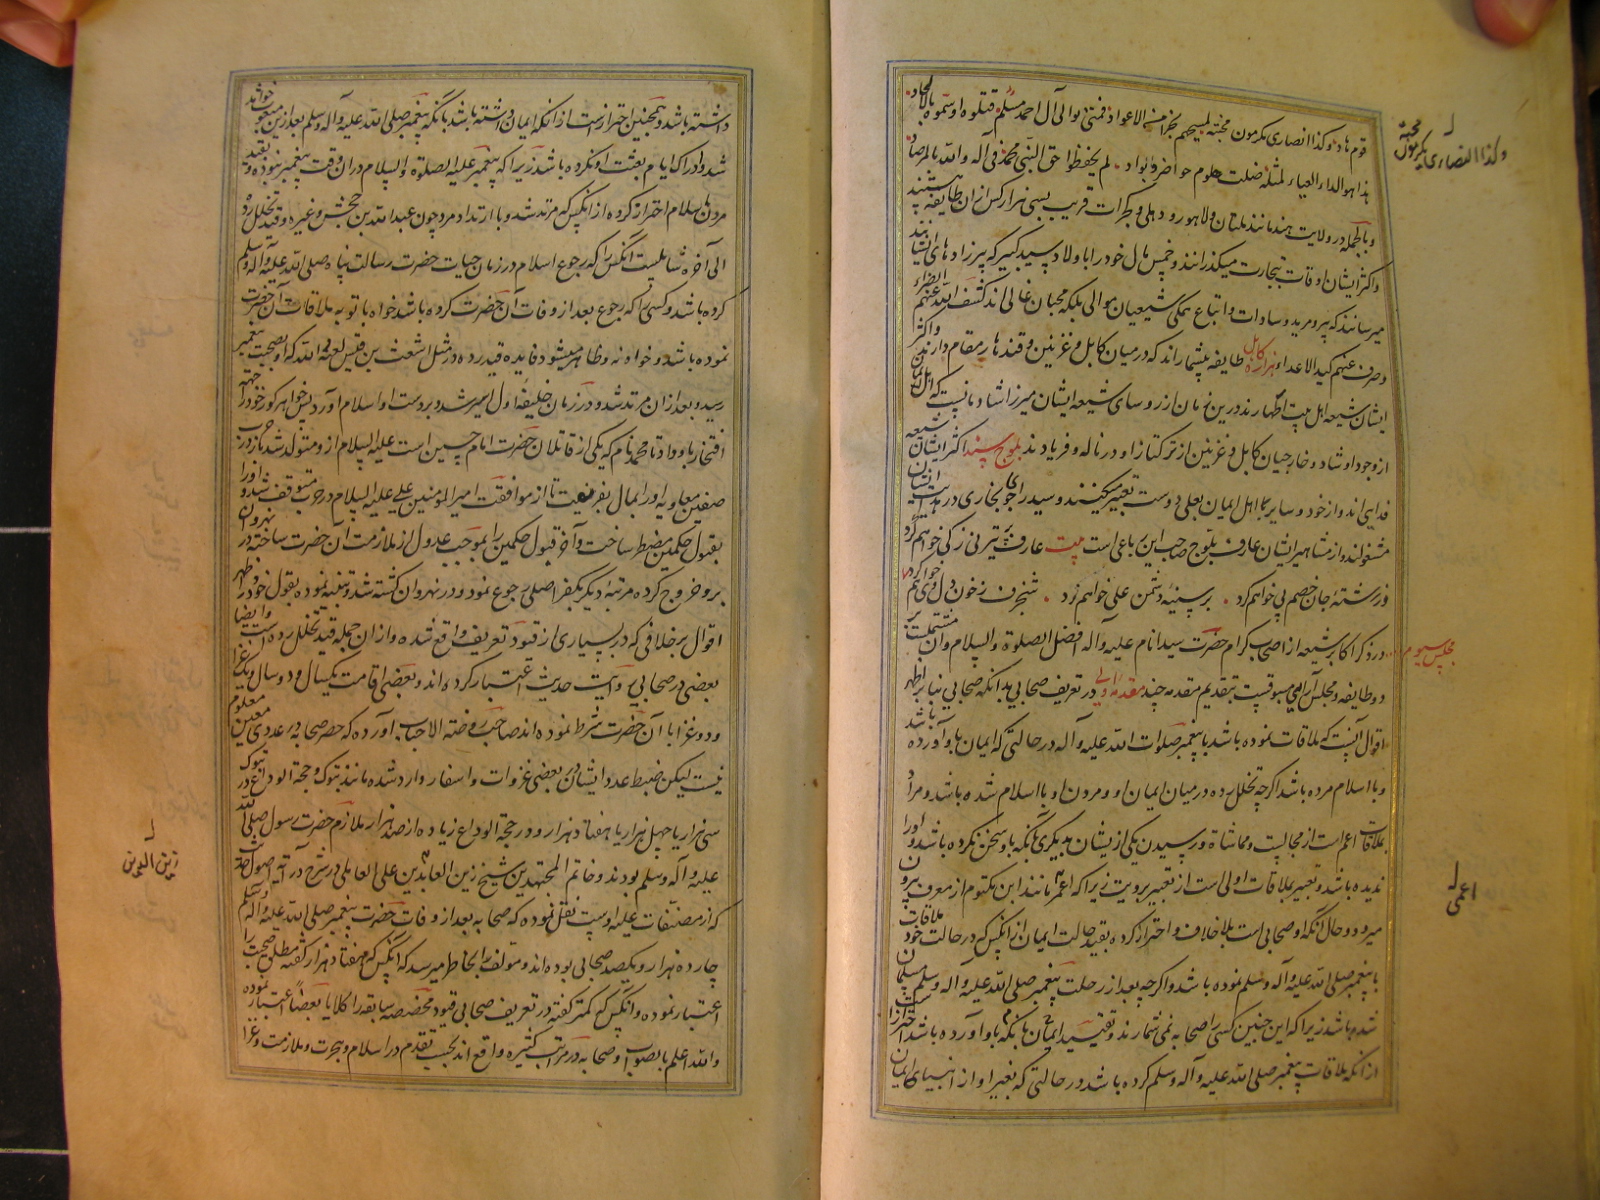 قوم هاد وکذا انصاری یکرمون محبة لمسیحهم نجرا من الاعواد فمتی نوالی آل احمد مسلم قتلوه او سموه بالالحاد
هذا هو الداء العیاء لمثله ضلت حلوم حواضر و بواد لم یحفظوا حق النبی محمد فی آله والله بالمرصاد
و بالجمله در ولایت هند مانند ملتان و لاهور و دهلی و کجرات قریب بسی هزار کس از ان طایفه هستند
و اکثر ایشان اوقات بتجارت میکذرانند و خمس مال خود را با ولاد سید کبیر که پیرزاد های ایشانند
میرسانند که پیر و مرید و سادات و اتباع همکی شیعیان موالی بلکه محبان غالی اند کشف الله عنهم الضراء
و صرف عنهم کید الاعداء هزاره کابل طایفه بیشمار اند که در میان کابل و غزنین و قندهار مقام دارند و اکثر
ایشان شیعه اهل بیت اطهارند و درین زمان از روسای شیعه ایشان میرزا شادمانیست که اهل ایمان
از وجود او شاد و خارجیان کابل و غزنین از ترکتاز او در ناله و فریادند بلوچ سند اکثر ایشان شیعه
فدایی اند و از خود و سایر اهل ایمان بعلی دوست تعبیر میکنند و سید راجوی بخاری در هدایت ایشان
مشغولند و از مشاهیر ایشان عارف بلوچ صاحب این رباعی است بیت عارف تیر نی زکی خواهم کرد
ور رشته جان خصم پی خواهم کرد بر سینه دشمن علی خواهم زد شنجرف ز خون دل وی خواهم کرد
مجلس سیوم در ذکر اکابر شیعه از اصحاب کرام حضرت سید انام علیه و آله افضل الصلوة والسلام و آن مشتملست
دو طایفه و مجلس آرامی مسبوقیست بتقدیم مقدمه چند مقدمه اولی در تعریف صحابی بدانکه صحابی بنا بر اظهر
اقوال آنست که ملاقات نموده باشد با پیغمبر صلوات الله علیه و آله در حالتی که ایمان باو آورده باشد
و با اسلام مرده باشد اگرچه تخلل رده در میان ایمان او و مردن او با اسلام شده باشد و مراد
بملاقات اعم است از مجالست و مماشاة و رسیدن یکی از ایشان بدیکری اگرچه باو سخن نکرده باشد و او را
ندیده باشد و تعبیر بملاقات اولی است از تعبیر برویت زیرا که اعمی مانند ابن مکتوم از معرف بیرون
میرود و حال آنکه او صحابی است بلا خلاف و احتراز کرده بقید حالت ایمان از آنکس که در حالت کفر ملاقات
با پیغمبر صلی الله علیه و آله و سلم نموده باشد و اگرچه بعد از رحلت پیغمبر صلی الله علیه و آله و سلم مسلمان
شده باشد زیرا که این چنین کسی را صحابه نمی شمارند و تقیید ایمان بآنکه باو آورده باشد احتراز است
از آنکه ملاقات پیغمبر صلی الله علیه و آله و سلم کرده باشد در حالتی که بغیر او از انبیا ایمان
وکذا النصاری یکرمون محبة
مجلس سیوم
اعمی
داشته باشد و همچنین احتراز است از آنکه ایمان داشته باشد بآنکه پیغمبر صلی الله علیه و آله و سلم بعد ازین مبعوث خواهد
شد و ادراک ایام بعثت او نکرده باشد زیرا که پیغمبر علیه الصلوة والسلام در ان وقت پیغمبر نبوده و بقید
مردن باسلام احتراز کرده از آنکس که مرتد شد و با ارتداد مرد چون عبد الله بن جحش و غیره و قید تخلل رده
الی آخره شاملست آنکس را که رجوع اسلام در زمان حیات حضرت رسالت پناه صلی الله علیه و آله و سلم
کرده باشد و کسی را که رجوع بعد از وفات آن حضرت کرده باشد خواه با توبه ملاقات آن حضرت
نموده باشد و خواه نه و ظاهر میشود فایده قید رده در مثل اشعث بن قیس لعنه الله که او بصحبت پیغمبر
رسید و بعد از ان مرتد شد و در زمان خلیفه اول اسیر شد و بر دست او اسلام آورد پس خواهر کور خود را جهة
افتخار باو داد تا محمد نام که یکی از قاتلان حضرت امام حسین است علیه السلام ازو متولد شد باز در حرب
صفین معاویه او را بمال بفریفت تا از موافقت امیر المومنین علی علیه السلام در حرب متوقف شد و او را
بقبول حکمین مضطر ساخت و آخر قبول حکمین را موجب عدول از ملازمت آن حضرت ساخته در نهروان
برو خروج کرده مرتبه دیگر بکفر اصلی رجوع نمود و در نهروان کشته شد و تنبیه نموده بقول خود اظهر
اقوال بر خلافی که در بسیاری از قیود تعریف واقع شده و از ان جمله قید تخلل رده است و ایضا
بعضی در صحابی روایت حدیث اعتبار کرده اند و بعضی اقامت یکسال و دو سال و یک غزا
و دو غزا با آن حضرت شرط نموده اند صاحب روضة الاحباب آورده که حصر صحابه در عددی معین معلوم
نیست لیکن ضبط عدد ایشان در بعضی غزوات و اسفار وارد شده مانند تبوک و حجة الوداع در تبوک
سی هزار یا چهل هزار یا هفتاد هزار و در حجة الوداع زیاده از صد هزار ملازم حضرت رسول صلی الله
علیه و آله و سلم بودند و خاتم المجتهدین شیخ زین العابدین علی العاملی در شرح درایه اصول حدیث
که از مصنفات علیه اوست نقل نموده که صحابه بعد از وفات حضرت پیغمبر صلی الله علیه و آله و سلم
چارده هزار و یکصد صحابی بوده اند و مولف را بخاطر میرسد که آنکس که هفتاد هزار کفته مطلق صحبت را
اعتبار نموده و آنکس که کمتر کفته در تعریف صحابی قیود مخصصه سابقه را کلا یا بعضا اعتبار نموده
والله اعلم بالصواب و صحابه در مراتب کثیره واقع اند بحسب تقدم در اسلام و هجرت و ملازمت و غزا
زین الدین